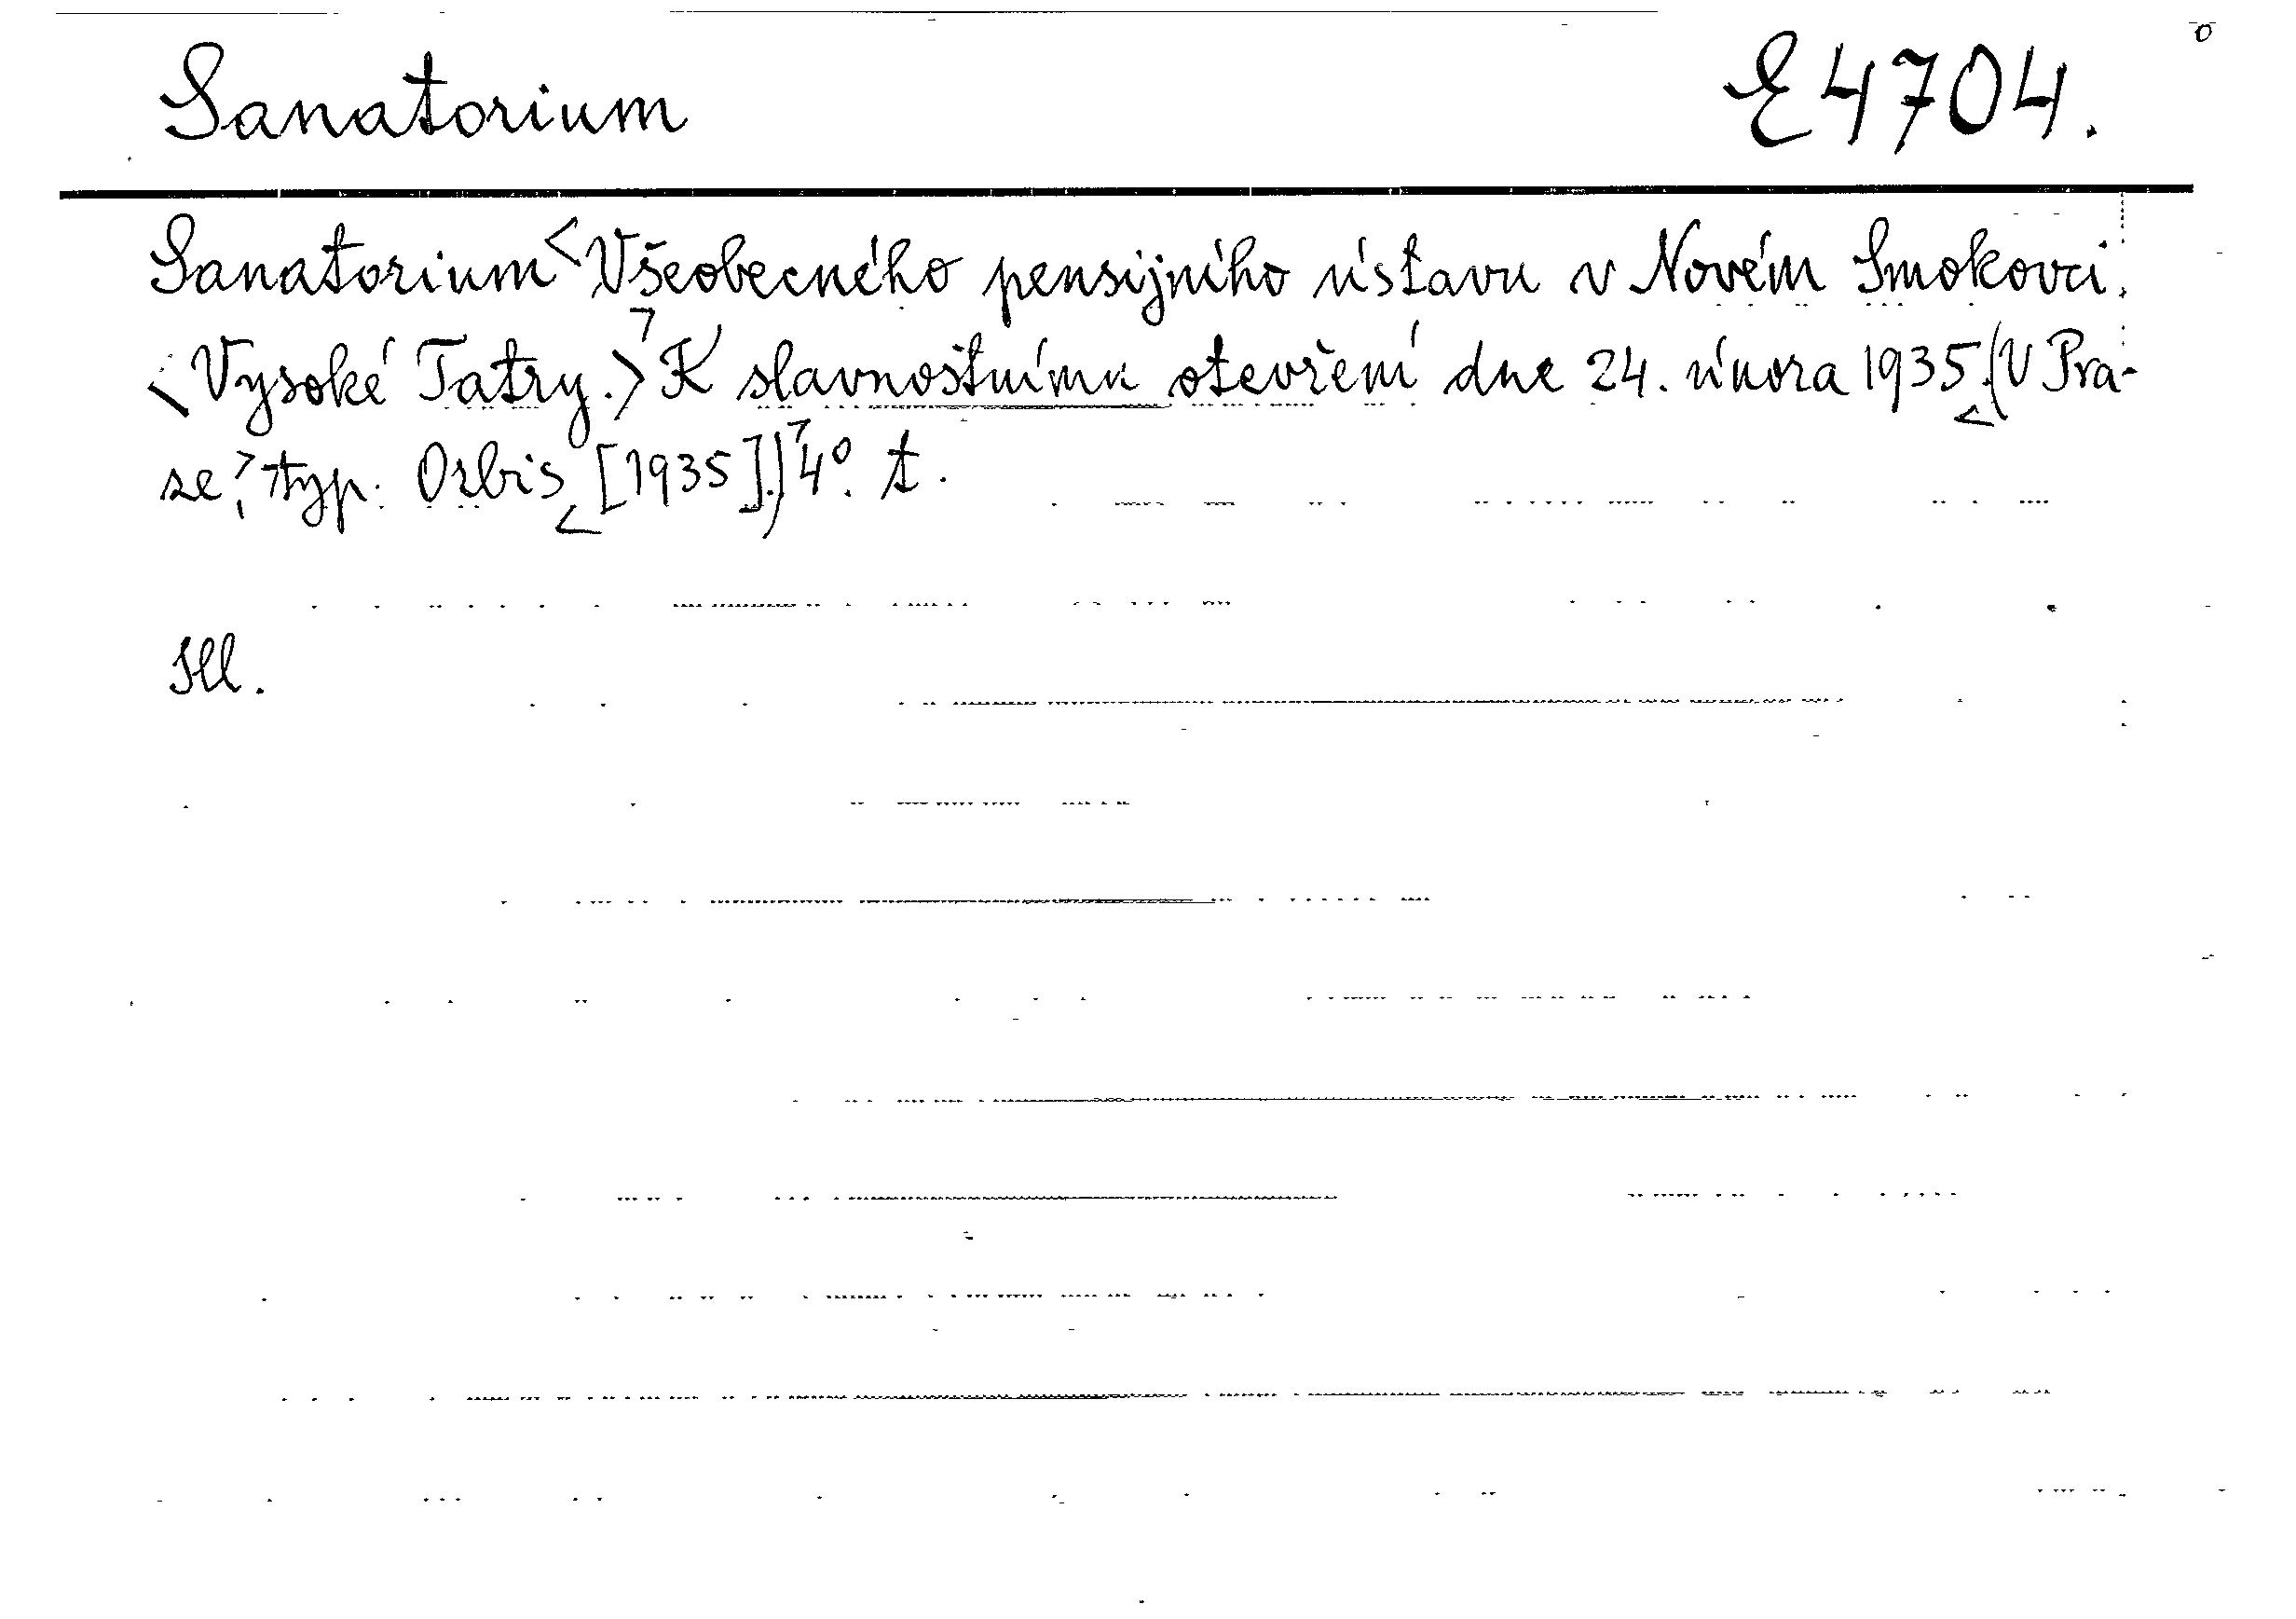 Sanatorium E 4704.
Sanatorium <Všeobecného pensijního ústavu v Novém Smokovci.
<Vysoké Tatry.> K slavnostnímu otevření dne 24. února 1935. (V Pra-
ze: typ. Orbis [1935].) 4°. t.
Ill.